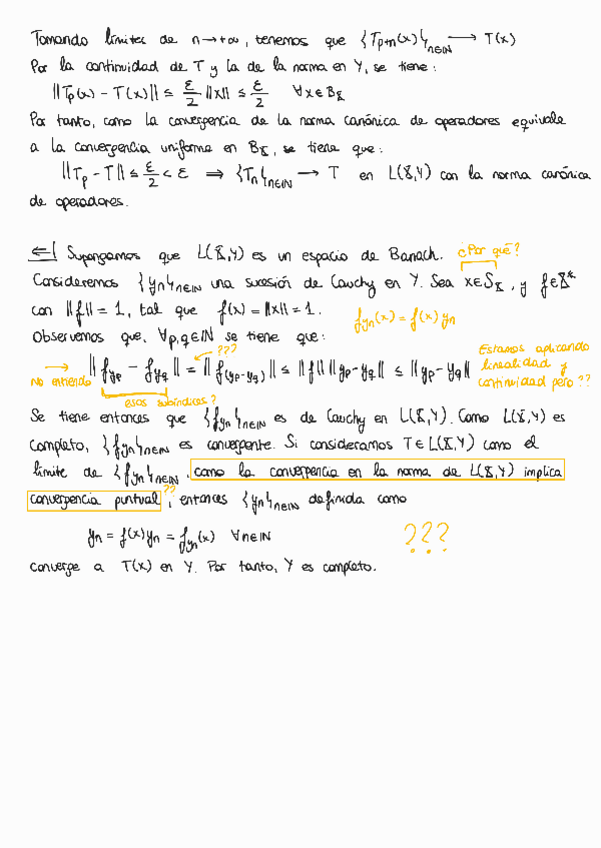 Tomando límites de n→+∞, tenemos que {T_{p+n}(x)}_{n∈ℕ} ⟶ T(x)
Por la continuidad de T y la de la norma en Y, se tiene:
||T_p(x) - T(x)|| ≤ ε/2 ||x|| ≤ ε/2 ∀x∈B_X
Por tanto, como la convergencia de la norma canónica de operadores equivale
a la convergencia uniforme en B_X, se tiene que:
||T_p - T|| ≤ ε/2 < ε ⟹ {T_n}_{n∈ℕ} ⟶ T en L(X,Y) con la norma canónica
de operadores.
⟸| Supongamos que L(X,Y) es un espacio de Banach. ¿Por qué?
Consideremos {y_n}_{n∈ℕ} una sucesión de Cauchy en Y. Sea x∈S_X, y f∈X*
con ||f|| = 1, tal que f(x) = ||x|| = 1. f_{y_n}(x) = f(x) y_n
Observemos que, ∀p,q∈ℕ se tiene que:
→ No entiendo ||f_{y_p} - f_{y_q}|| = ||f_{(y_p-y_q)}|| ≤ ||f|| ||y_p-y_q|| ≤ ||y_p-y_q|| ???
esos subíndices?
Estamos aplicando
linealidad y
continuidad pero??
Se tiene entonces que {f_{y_n}}_{n∈ℕ} es de Cauchy en L(X,Y). Como L(X,Y) es
completo, {f_{y_n}}_{n∈ℕ} es convergente. Si consideramos T∈L(X,Y) como el
límite de {f_{y_n}}_{n∈ℕ}, como la convergencia en la norma de L(X,Y) implica
convergencia puntual ??, entonces {y_n}_{n∈ℕ} definida como
y_n = f(x)y_n = f_{y_n}(x) ∀n∈ℕ ???
converge a T(x) en Y. Por tanto, Y es completo.